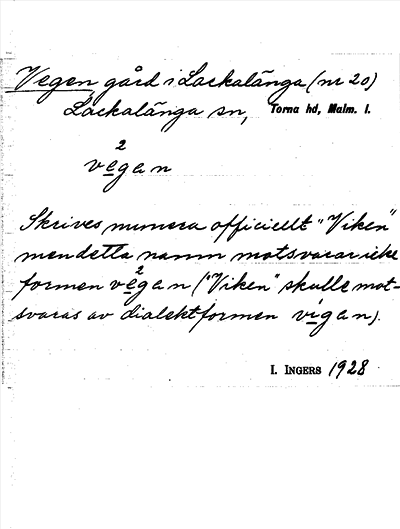 Vegen gård i Lackalänga (nr 20)
Lackalänga sn, Torna hd, Malm. l.
2
vegan
Skrives numera officiellt "Viken"
men detta namn motsvarar icke
2
formen vegan ("Viken" skulle mot-
svaras av dialektformen vígan).
I. INGERS 1928